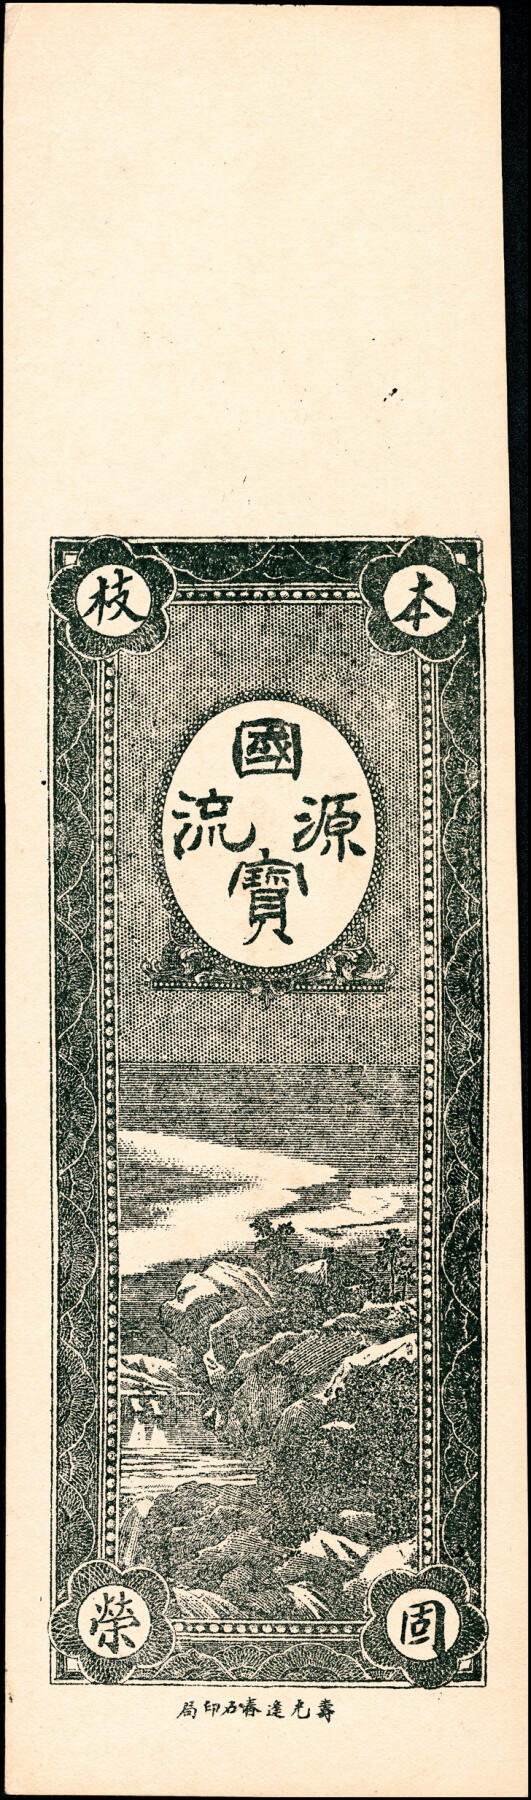 本固枝榮
國寶源流
壽光逢春石印局